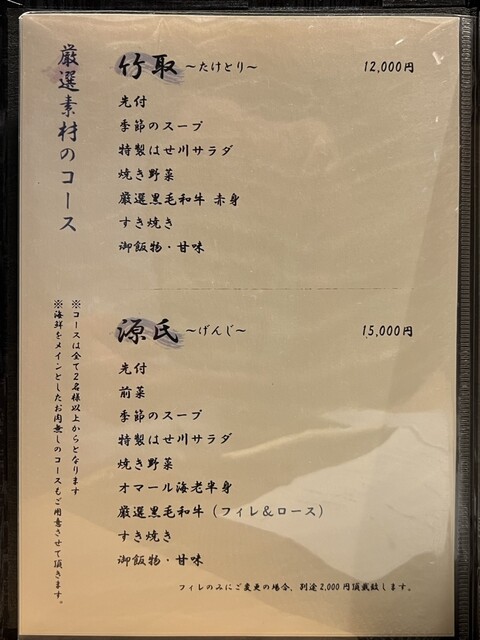 厳選素材のコース
竹取 〜たけとり〜 12,000円
先付
季節のスープ
特製はせ川サラダ
焼き野菜
厳選黒毛和牛 赤身
すき焼き
御飯物・甘味
源氏 〜げんじ〜 15,000円
先付
前菜
季節のスープ
特製はせ川サラダ
焼き野菜
オマール海老半身
厳選黒毛和牛(フィレ&ロース)
すき焼き
御飯物・甘味
フィレのみにご変更の場合、別途2,000円頂戴致します。
※コースは全て2名様以上からとなります
※海鮮をメインとしたお肉無しのコースもご用意させて頂きます。